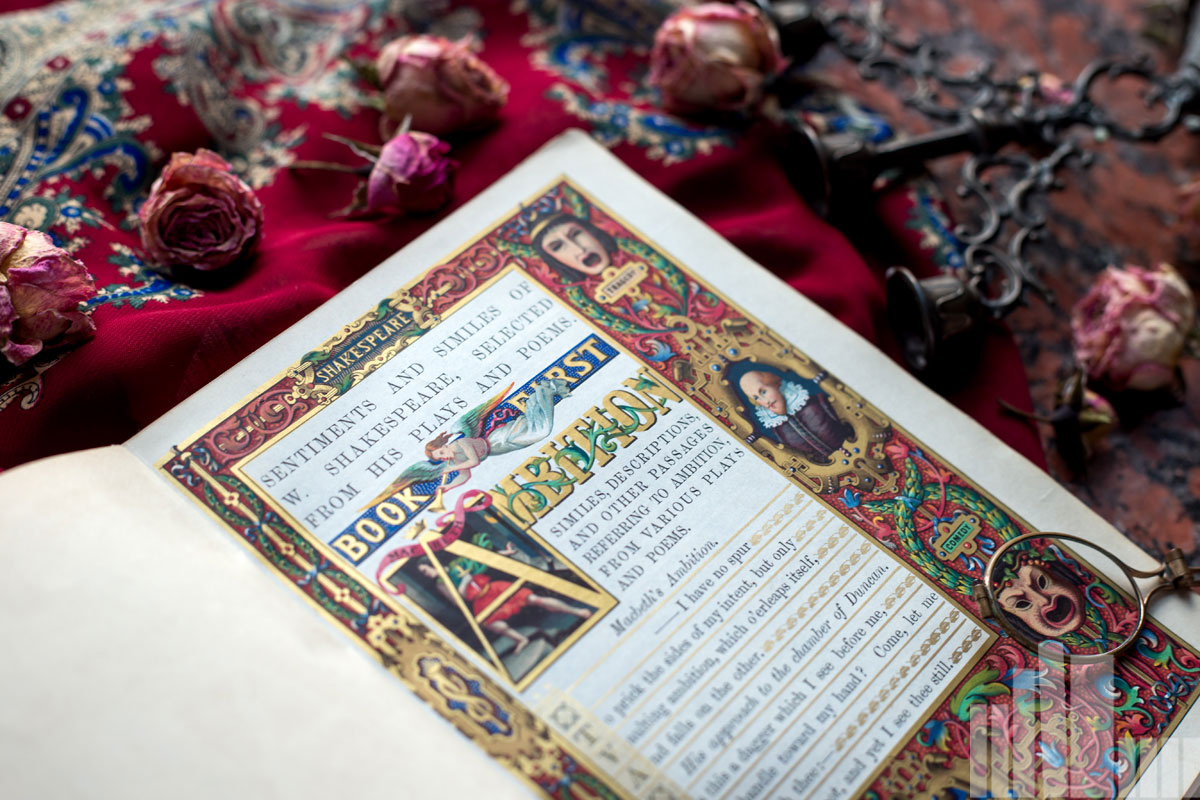 SHAKESPEARE
TRAGEDY
SENTIMENTS AND SIMILES OF
W. SHAKESPEARE, SELECTED
FROM HIS PLAYS AND POEMS.
BOOK FIRST
AMBITION
SIMILES, DESCRIPTIONS,
AND OTHER PASSAGES
REFERRING TO AMBITION,
FROM VARIOUS PLAYS
AND POEMS.
Macbeth's Ambition.
—I have no spur
prick the sides of my intent, but only
aulting ambition, which o'erleaps itself,
nd falls on the other.
His approach to the chamber of Duncan.
this a dagger which I see before me,
handle toward my hand? Come, let me
thee:—
and yet I see thee still.
COMEDY